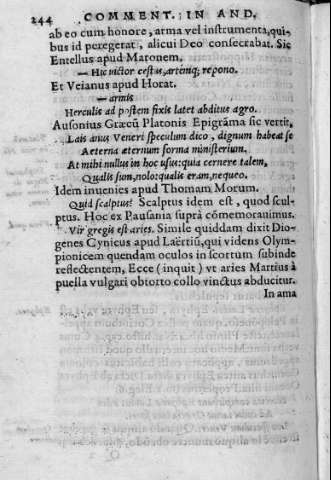 244 COMMENT. IN AND.
ab eo cum honore, arma vel instrumenta, qui-
bus id peregerat, alicui Deo consecrabat. Sic
Entellus apud Maronem.
— Hic victor cestus, artemq; repono.
Et Veianus apud Horat.
— armis
Herculis ad postem fixis latet abditus agro.
Ausonius Græcū Platonis Epigrāma sic vertit,
Lais anus Veneri speculum dico, dignum habeat se
Aeterna æternum forma ministerium.
At mihi nullus in hoc usus: quia cernere talem,
Qualis sum, nolo: qualis eram, nequeo.
Idem inuenies apud Thomam Morum.
Quid scalptus? Scalptus idem est, quod scul-
ptus. Hoc ex Pausania suprà cōmemorauimus.
Vir gregis est aries. Simile quiddam dixit Dio-
genes Cynicus apud Laërtiū, qui videns Olym-
pionicem quendam oculos in scortum subinde
reflectentem, Ecce (inquit) vt aries Martius à
puella vulgari obtorto collo vinctus abducitur.
In ama